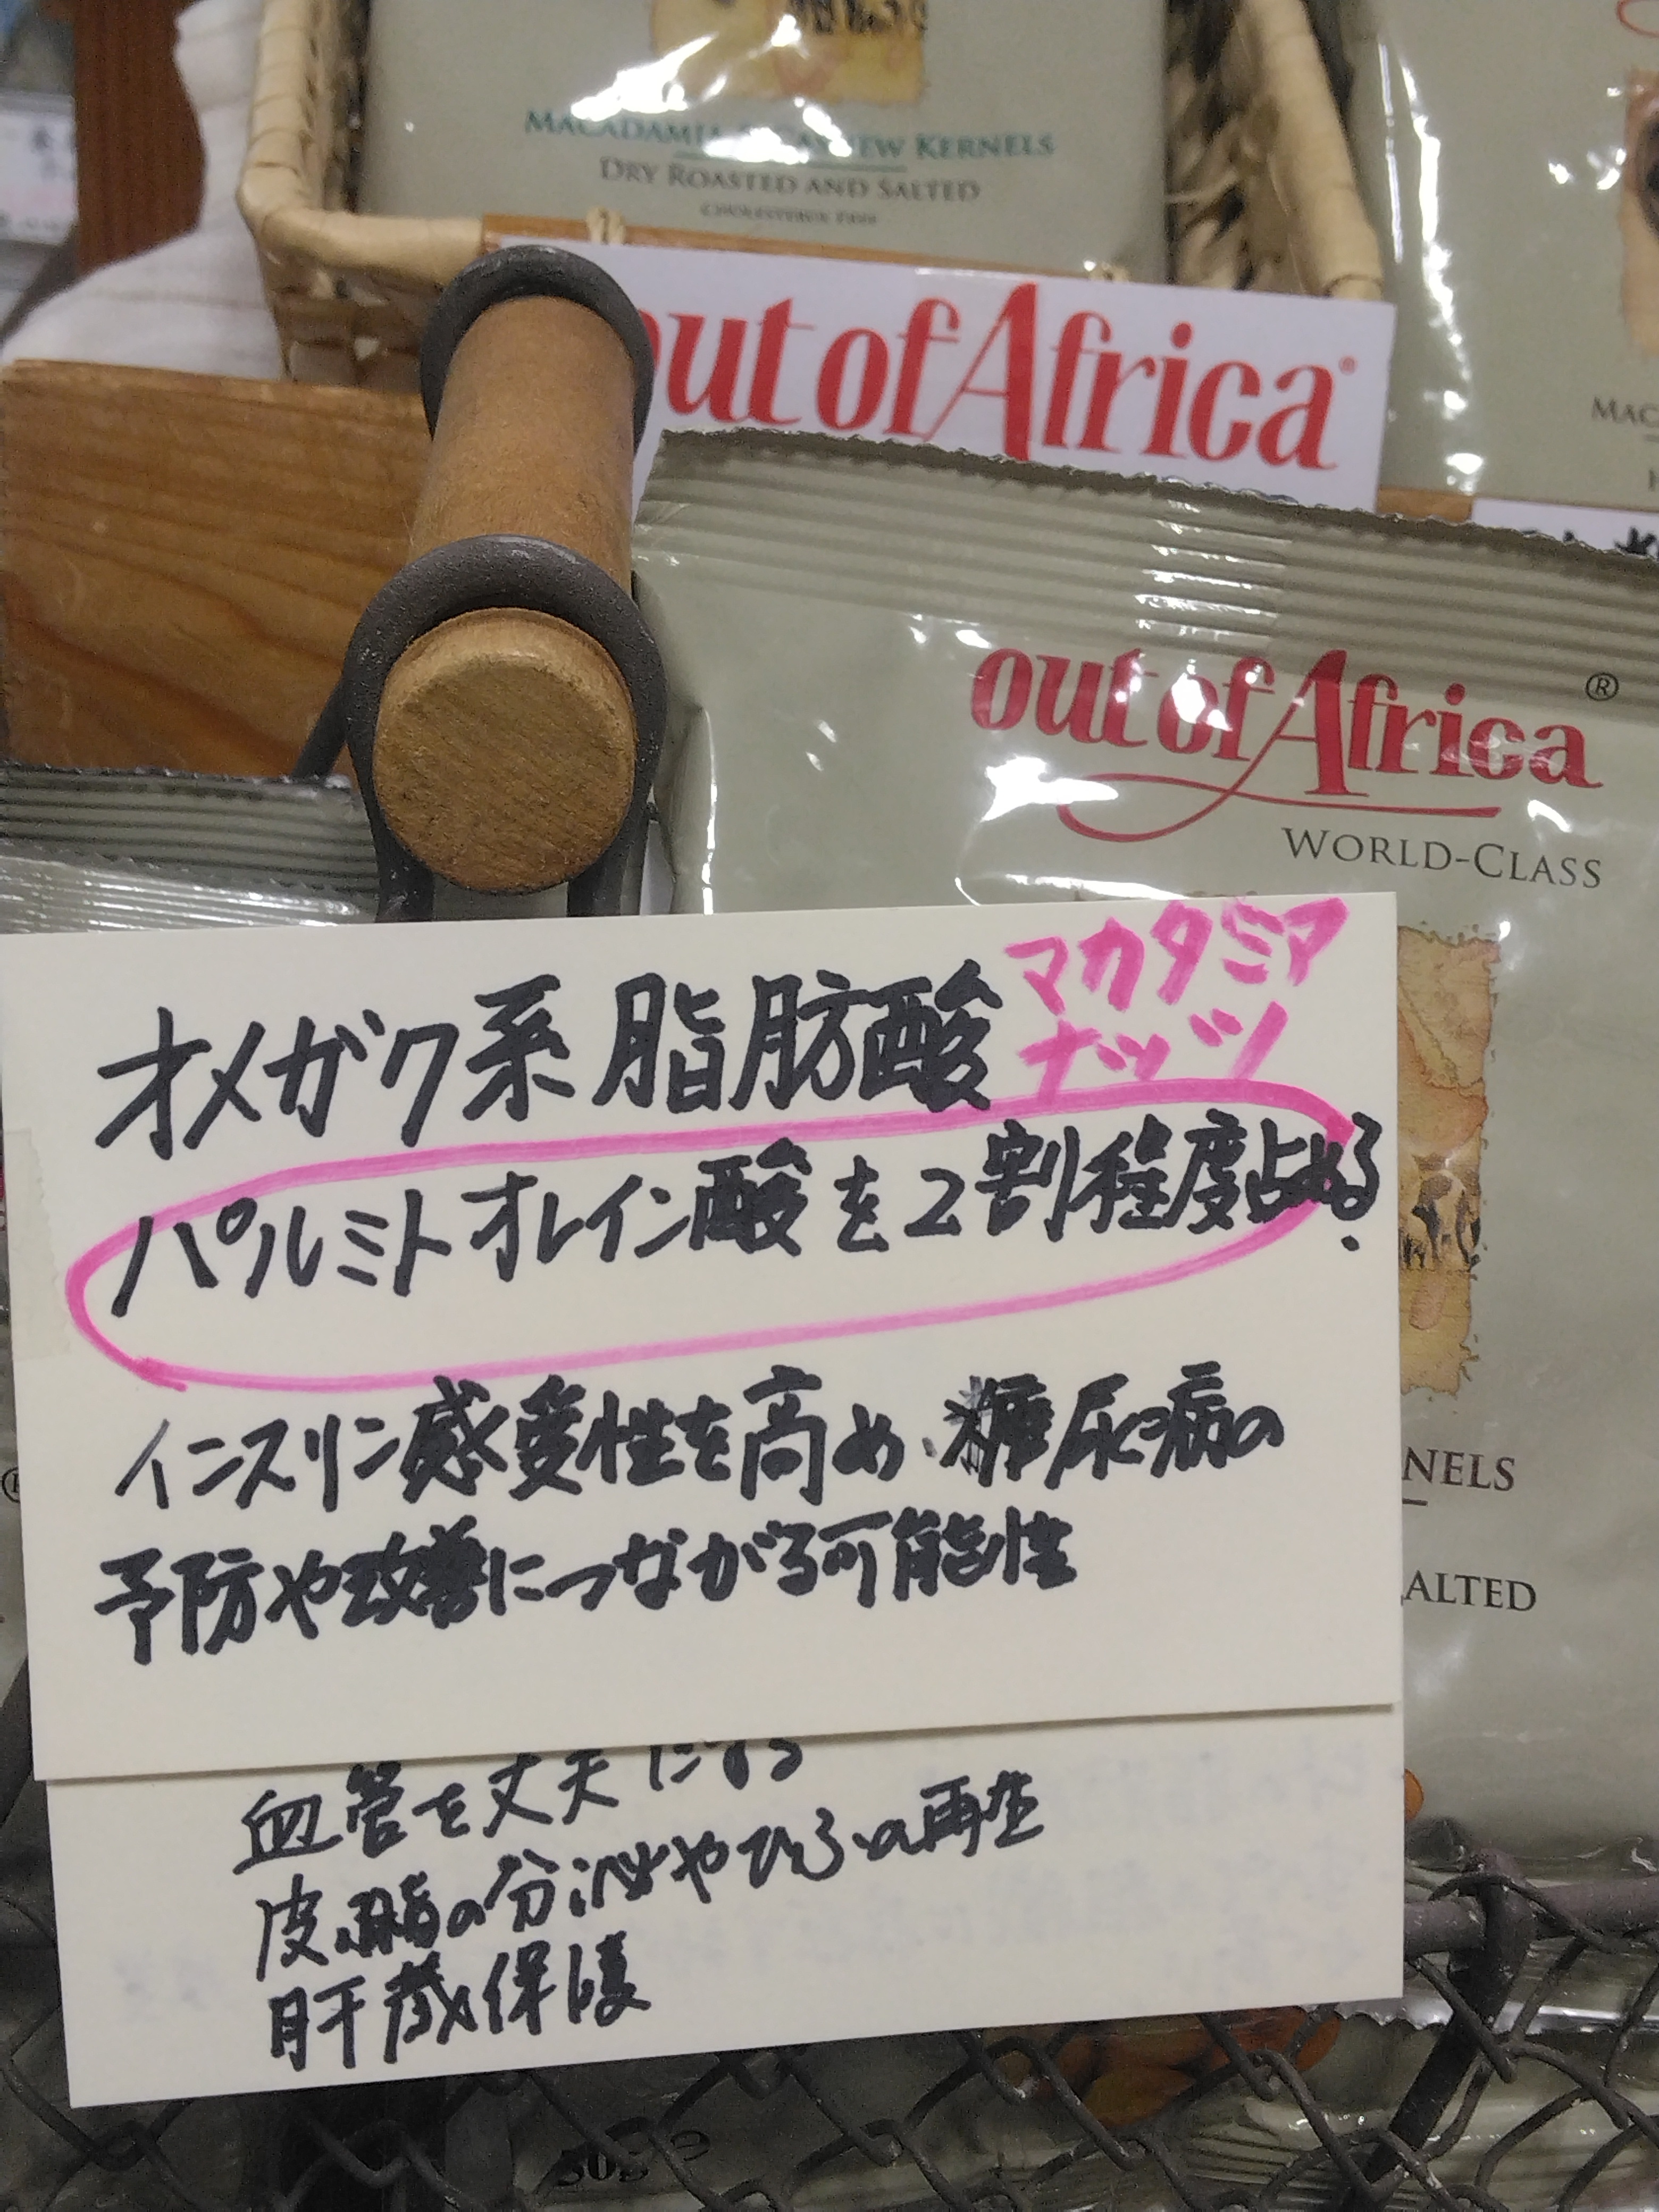 MACADAMIA & CASHEW KERNELS
DRY ROASTED AND SALTED
CHOLESTEROL FREE
out of Africa®
MAC
out of Africa®
WORLD-CLASS
NELS
ALTED
オメガク系脂肪酸
マカタミア
ナッツ
パルミトオレイン酸を2割程度占める.
インスリン感受性を高め、糖尿病の
予防や改善につながる可能性
血管を丈夫にする
皮脂の分泌やひふの再生
肝蔵保護
50g e